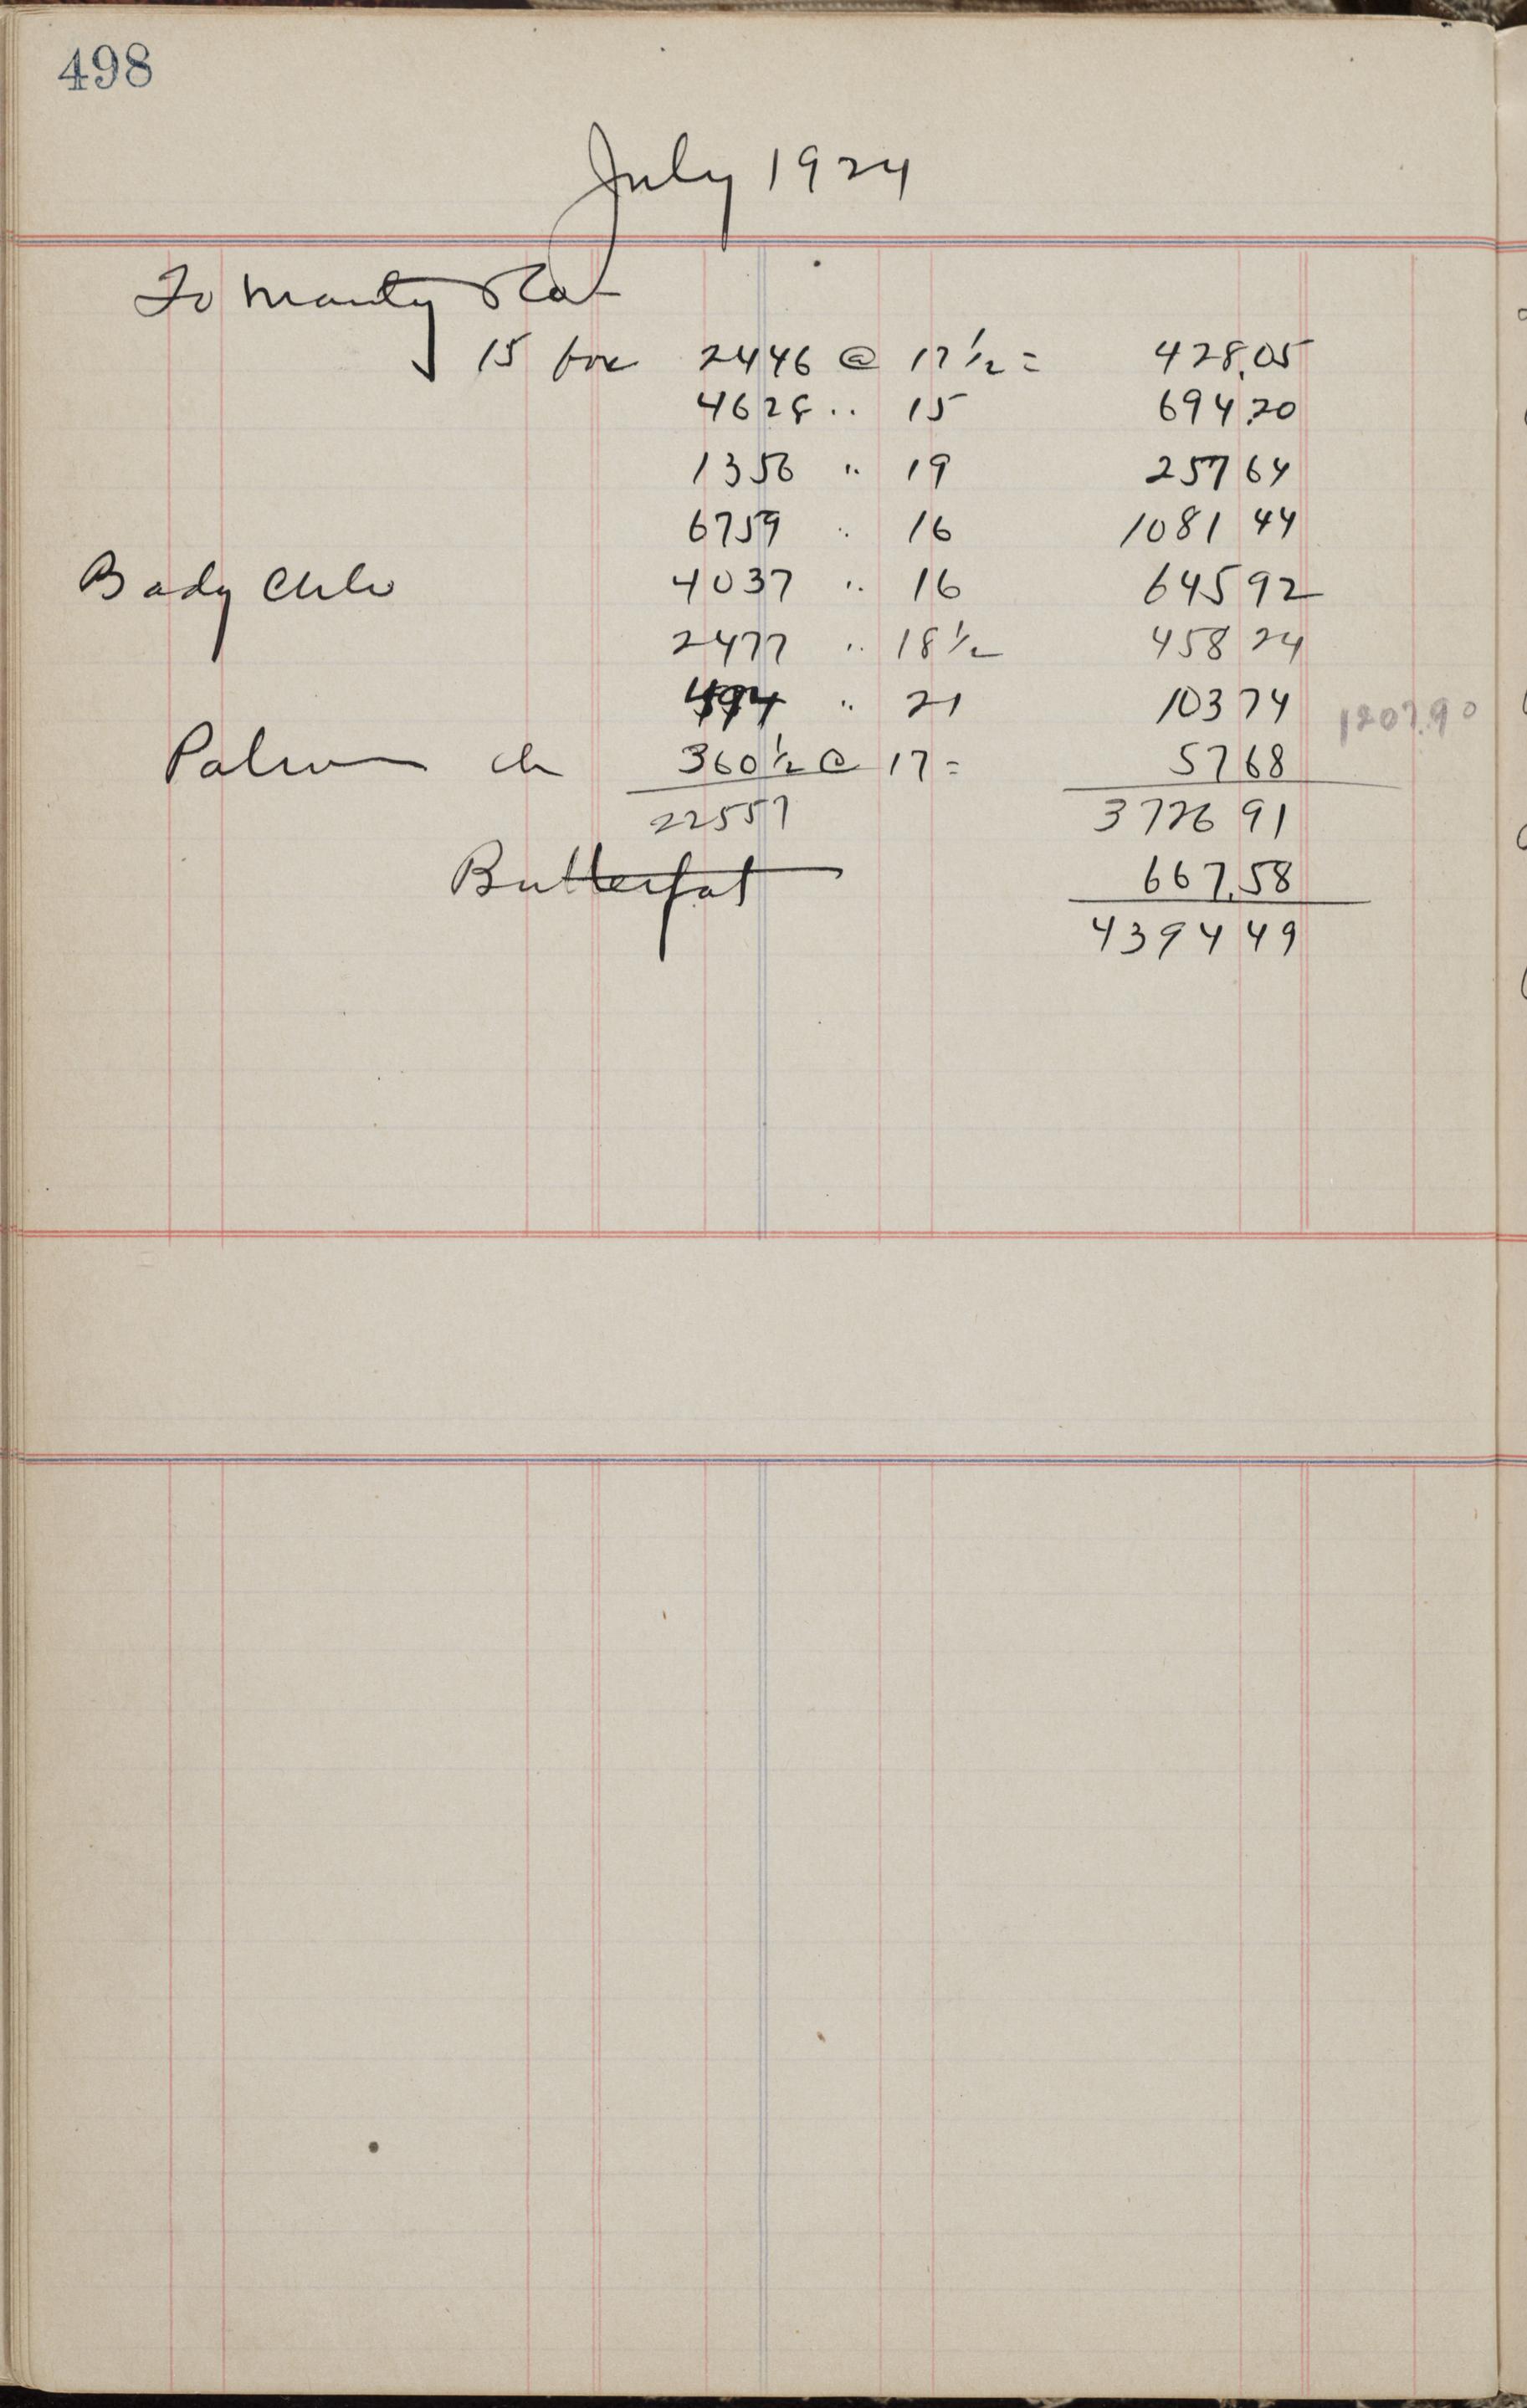 498
July 1924
To
15 box 2446 @ 17½ = 428.05
4628 " 15 694.20
1356 " 19 257 64
6759 " 16 1081 44
4037 " 16 645 92
2477 " 18½ 458 24
494 " 21 103 74 1207.90
360½ @ 17 = 57 68
22557 3726 91
Butterfat 667.58
4394 49